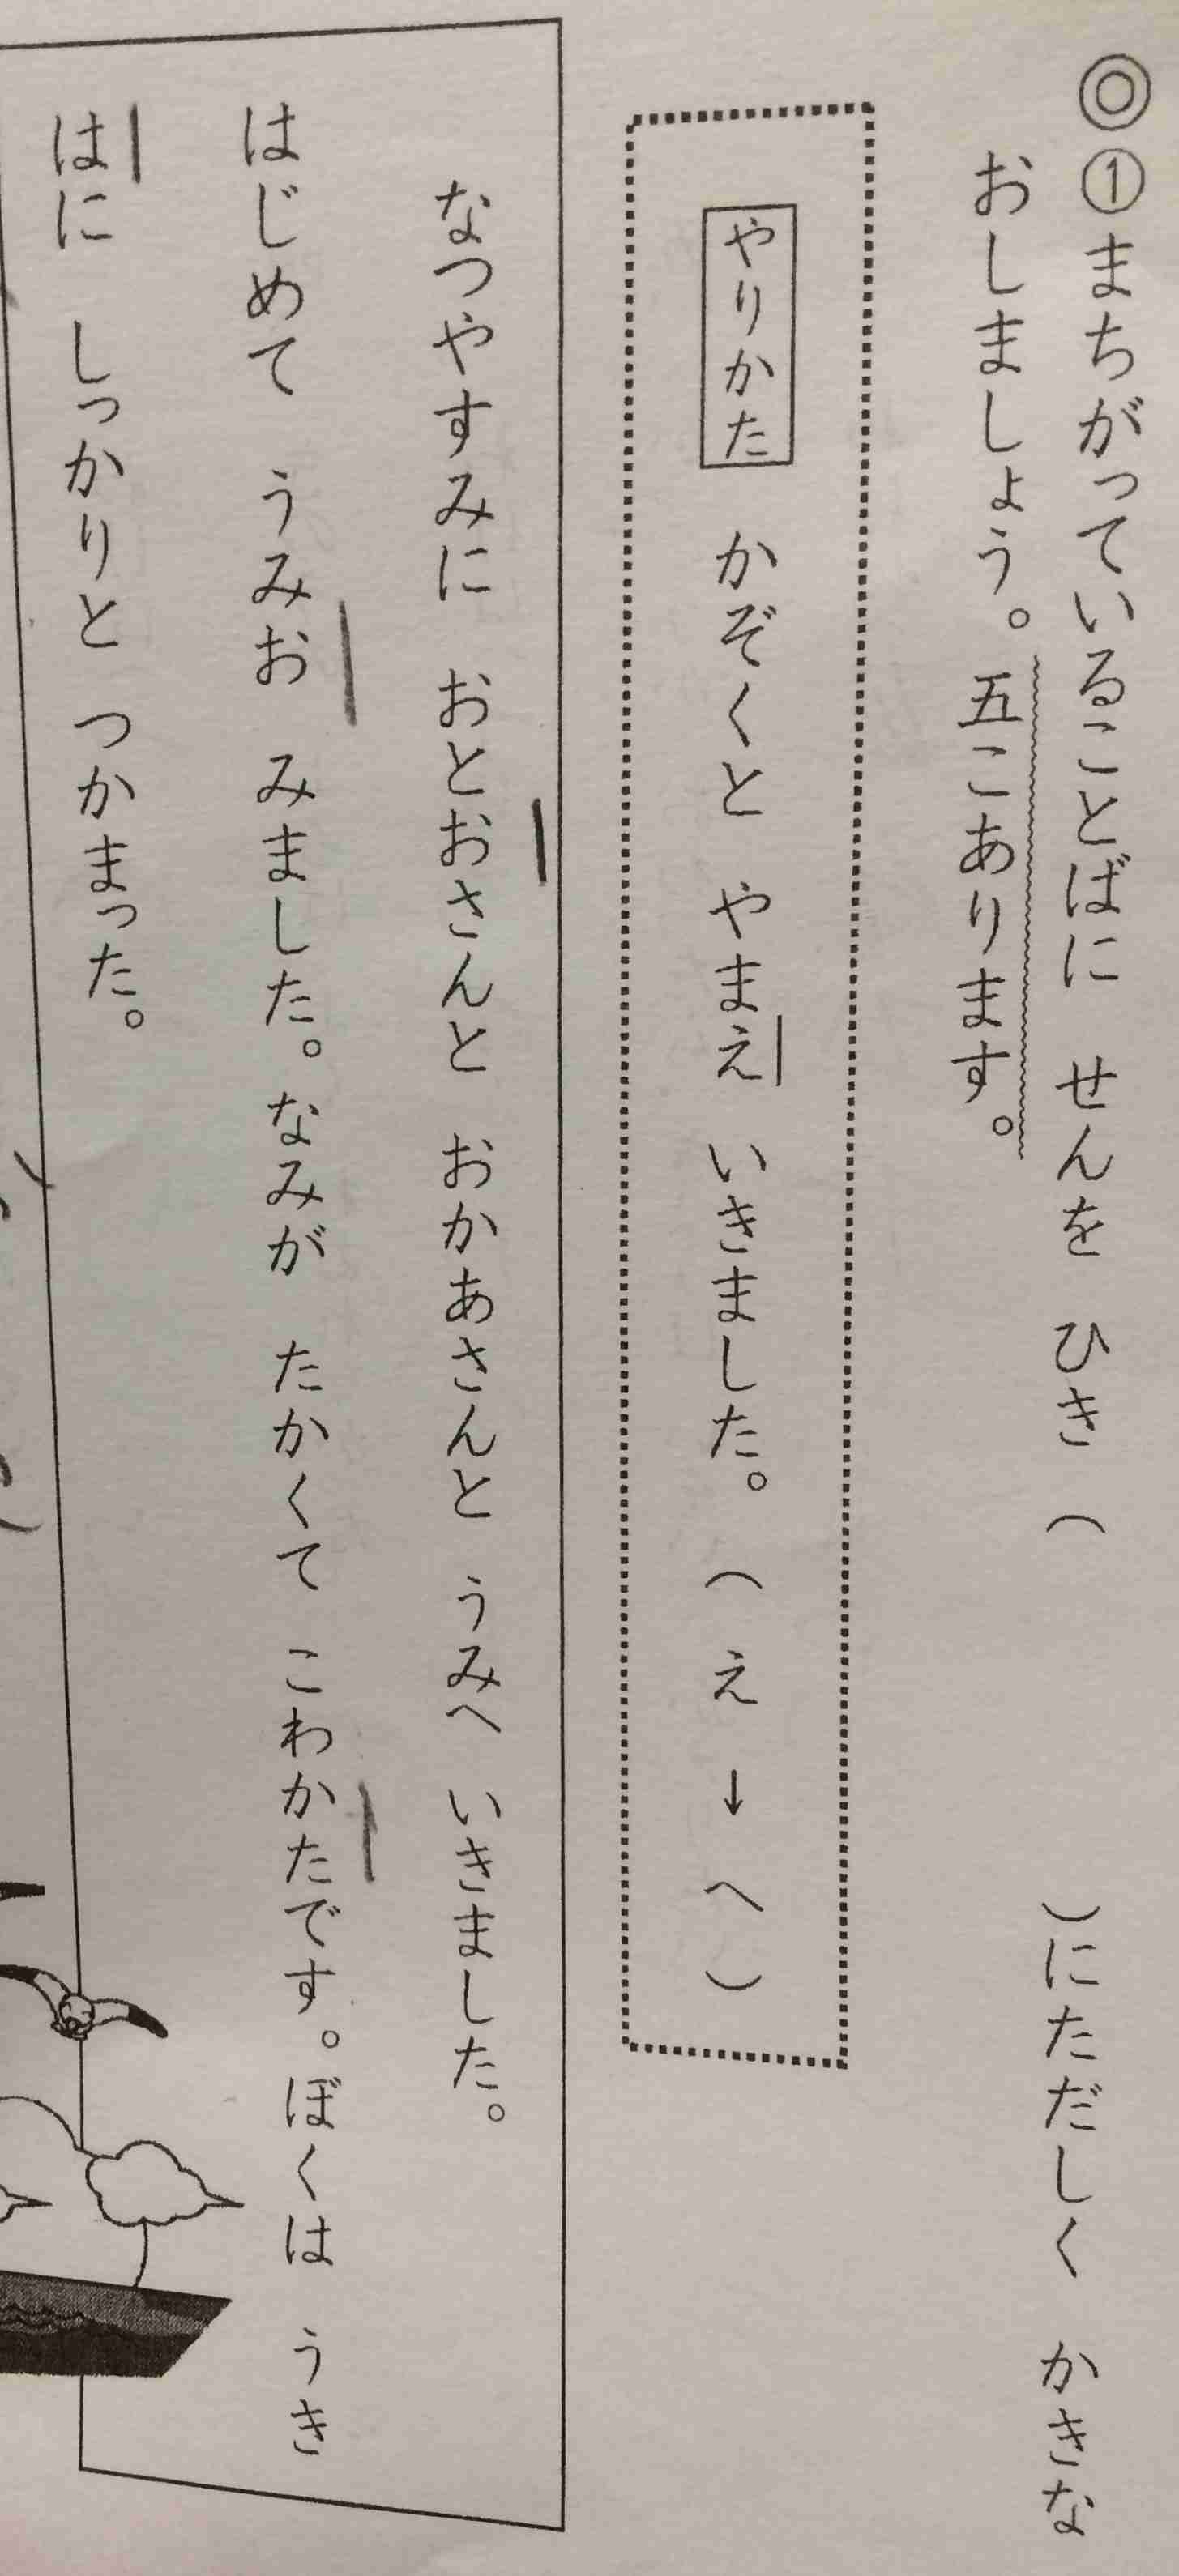 ◎①まちがっていることばに せんを ひき （ ）にただしく かきな
おしましょう。五こあります。
やりかた かぞくと やまえ いきました。（え→へ）
なつやすみに おとおさんと おかあさんと うみへ いきました。
はじめて うみお みました。なみが たかくて こわかたです。ぼくは うき
はに しっかりと つかまった。